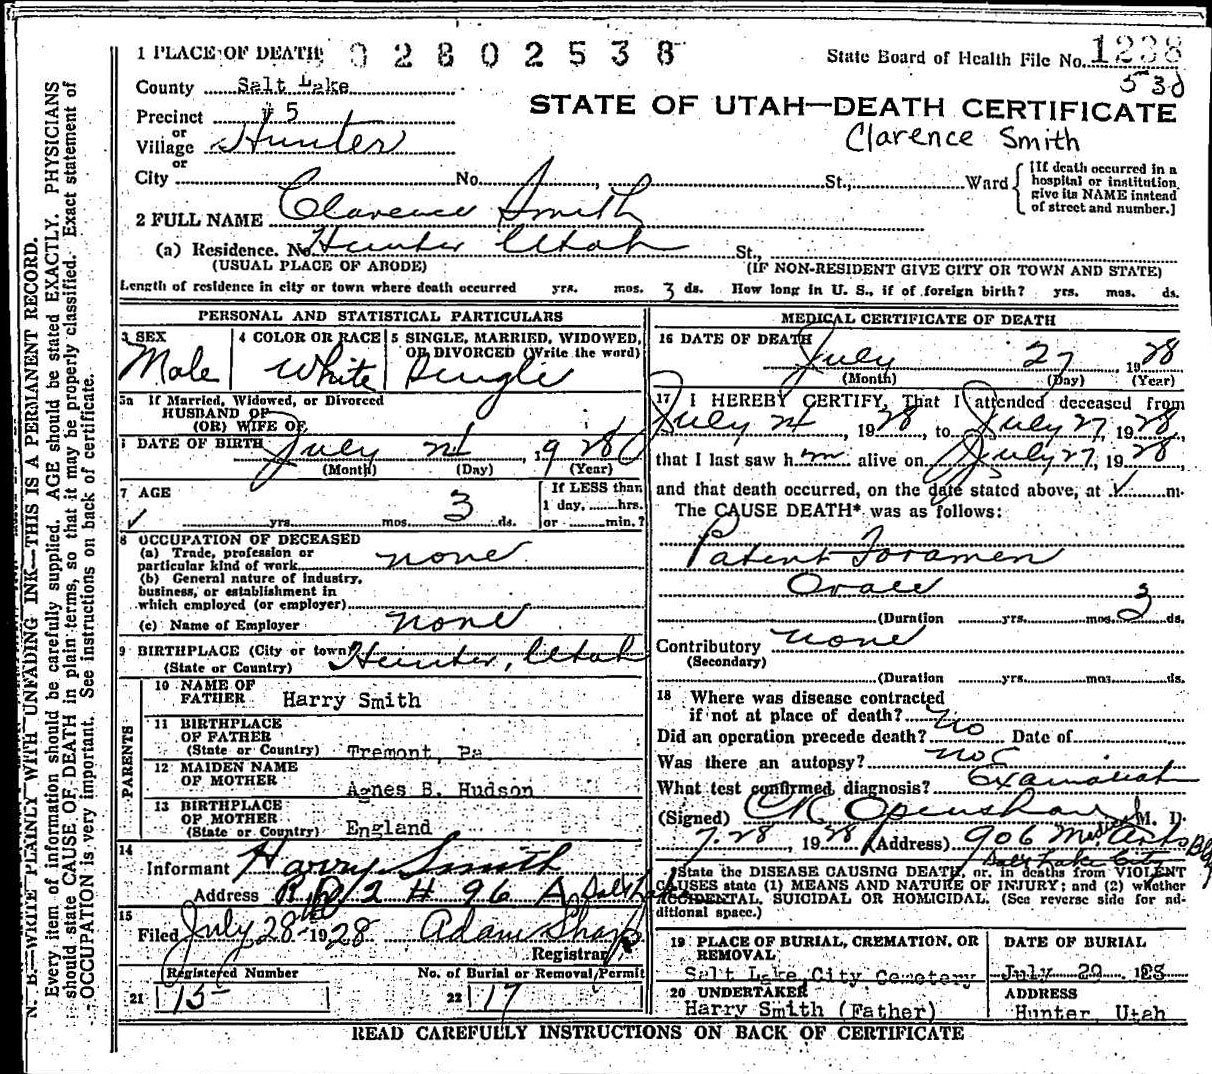 1 PLACE OF DEATH 02802538 State Board of Health File No. 1238
530
County Salt Lake
STATE OF UTAH—DEATH CERTIFICATE
Precinct #5
Clarence Smith
or
Village Hunter
or
City No. , St., Ward
[If death occurred in a
hospital or institution
give its NAME instead
of street and number.]
2 FULL NAME Clarence Smith
(a) Residence. No. Hunter Utah St.,
(USUAL PLACE OF ABODE) (IF NON-RESIDENT GIVE CITY OR TOWN AND STATE)
Length of residence in city or town where death occurred yrs. mos. 3 ds. How long in U. S., if of foreign birth? yrs. mos. ds.
PERSONAL AND STATISTICAL PARTICULARS
3 SEX
Male
4 COLOR OR RACE
White
5 SINGLE, MARRIED, WIDOWED,
OR DIVORCED (Write the word)
Single
5a If Married, Widowed, or Divorced
HUSBAND OF
(OR) WIFE OF
DATE OF BIRTH July 24 1928
(Month) (Day) (Year)
7 AGE
yrs. mos. 3 ds.
If LESS than
1 day, hrs.
or min.?
8 OCCUPATION OF DECEASED
(a) Trade, profession or
particular kind of work none
(b) General nature of industry,
business, or establishment in
which employed (or employer)
(c) Name of Employer none
9 BIRTHPLACE (City or town) Hunter, Utah
(State or Country)
PARENTS
10 NAME OF
FATHER Harry Smith
11 BIRTHPLACE
OF FATHER
(State or Country) Tremont, Pa
12 MAIDEN NAME
OF MOTHER Agnes B. Hudson
13 BIRTHPLACE
OF MOTHER
(State or Country) England
14
Informant Harry Smith
Address R D 2 # 96 A Salt Lake
15
Filed July 28 1928 Adam Sharp
Registrar
Registered Number No. of Burial or Removal Permit
21 15 22 17
MEDICAL CERTIFICATE OF DEATH
16 DATE OF DEATH
July 27, 1928
(Month) (Day) (Year)
17 I HEREBY CERTIFY, That I attended deceased from
July 24, 1928, to July 27, 1928,
that I last saw him alive on July 27, 1928
and that death occurred, on the date stated above, at m.
The CAUSE DEATH* was as follows:
Patent Foramen
Ovale
(Duration yrs. mos. 3 ds.
Contributory none
(Secondary)
(Duration yrs. mos. ds.
18 Where was disease contracted
if not at place of death?
Did an operation precede death? no Date of
Was there an autopsy? no
What test confirmed diagnosis? Examination
(Signed) CR Openshaw M. D.
7-28, 1928 (Address) 906 Medical Arts Bldg
Salt Lake City
*State the DISEASE CAUSING DEATH, or, in deaths from VIOLENT
CAUSES state (1) MEANS AND NATURE OF INJURY; and (2) whether
ACCIDENTAL, SUICIDAL OR HOMICIDAL. (See reverse side for ad-
ditional space.)
19 PLACE OF BURIAL, CREMATION, OR
REMOVAL
Salt Lake City Cemetery
DATE OF BURIAL
July 29, 1928
20 UNDERTAKER
Harry Smith (Father)
ADDRESS
Hunter, Utah
READ CAREFULLY INSTRUCTIONS ON BACK OF CERTIFICATE
N. B.—WRITE PLAINLY WITH UNFADING INK—THIS IS A PERMANENT RECORD.
Every item of information should be carefully supplied. AGE should be stated EXACTLY. PHYSICIANS
should state CAUSE OF DEATH in plain terms, so that it may be properly classified. Exact statement of
OCCUPATION is very important. See instructions on back of certificate.